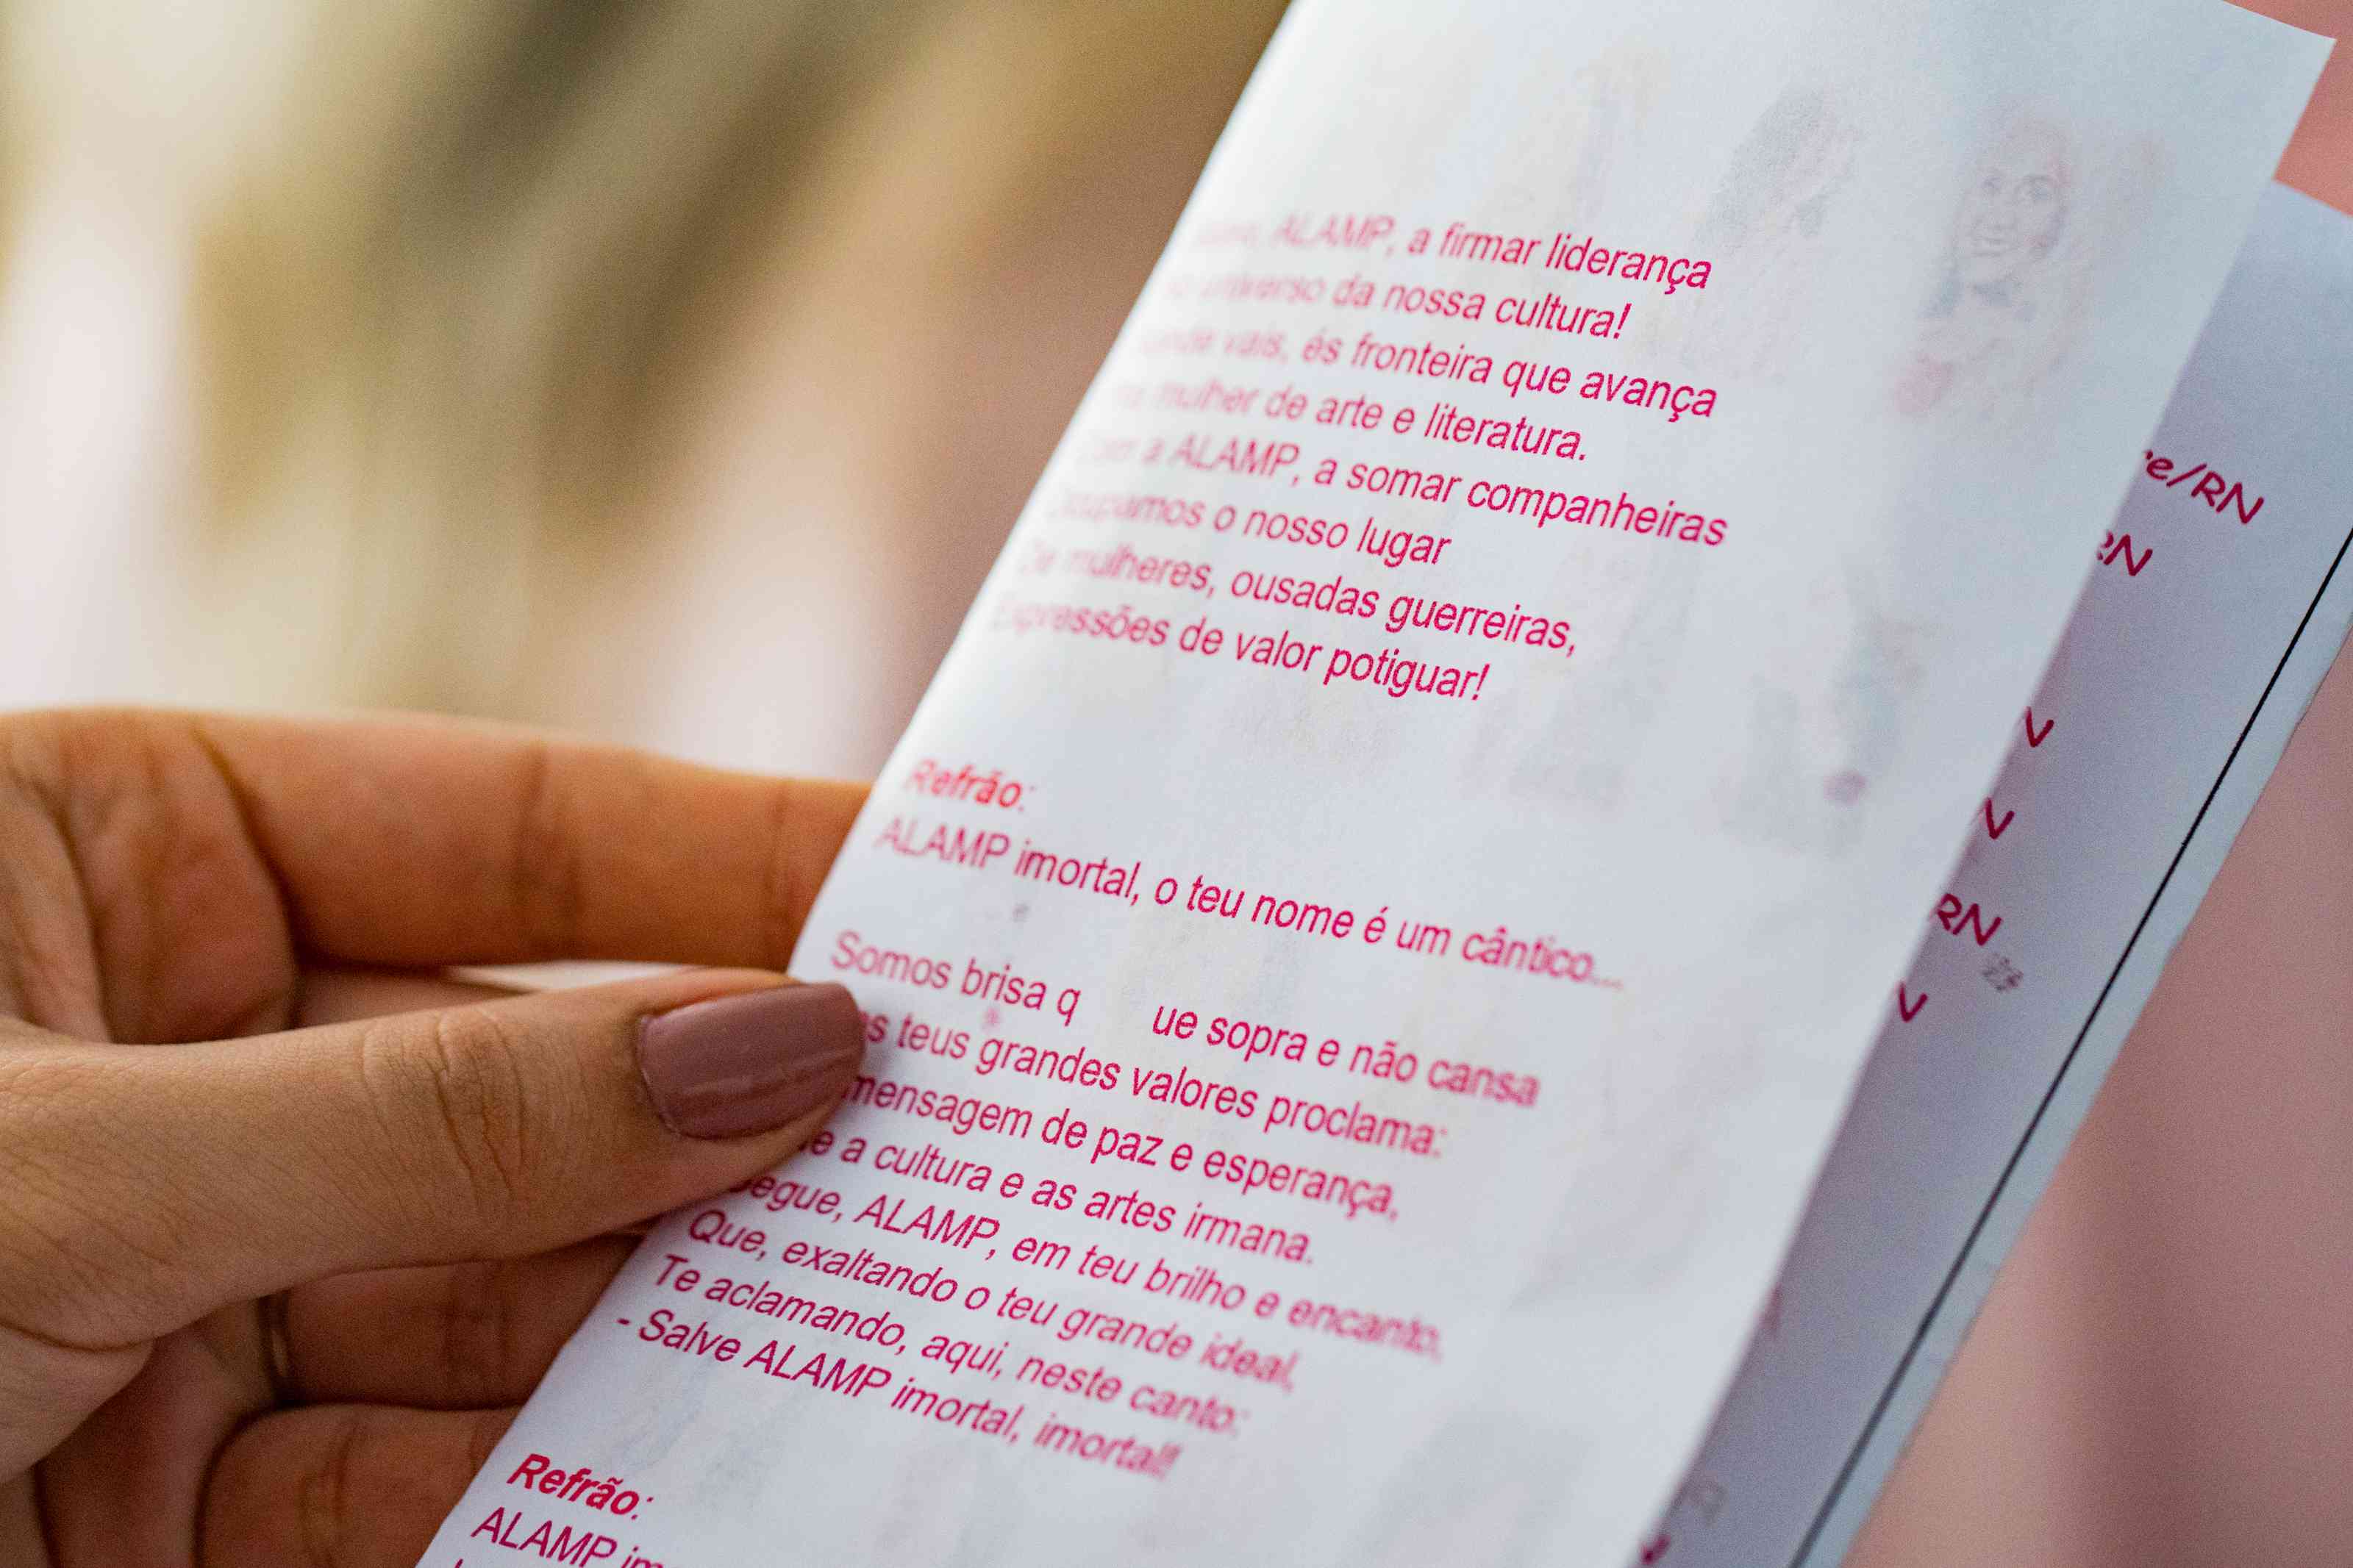 ALAMP, a firmar liderança
universo da nossa cultura!
vais, és fronteira que avança
mulher de arte e literatura.
a ALAMP, a somar companheiras
o nosso lugar
De mulheres, ousadas guerreiras,
Expressões de valor potiguar!
Refrão:
ALAMP imortal, o teu nome é um cântico...
Somos brisa q ue sopra e não cansa
teus grandes valores proclama:
mensagem de paz e esperança,
a cultura e as artes irmana.
Segue, ALAMP, em teu brilho e encanto,
Que, exaltando o teu grande ideal,
Te aclamando, aqui, neste canto:
- Salve ALAMP imortal, imortal!
Refrão:
ALAMP
re/RN
RN
N
N
RN
N